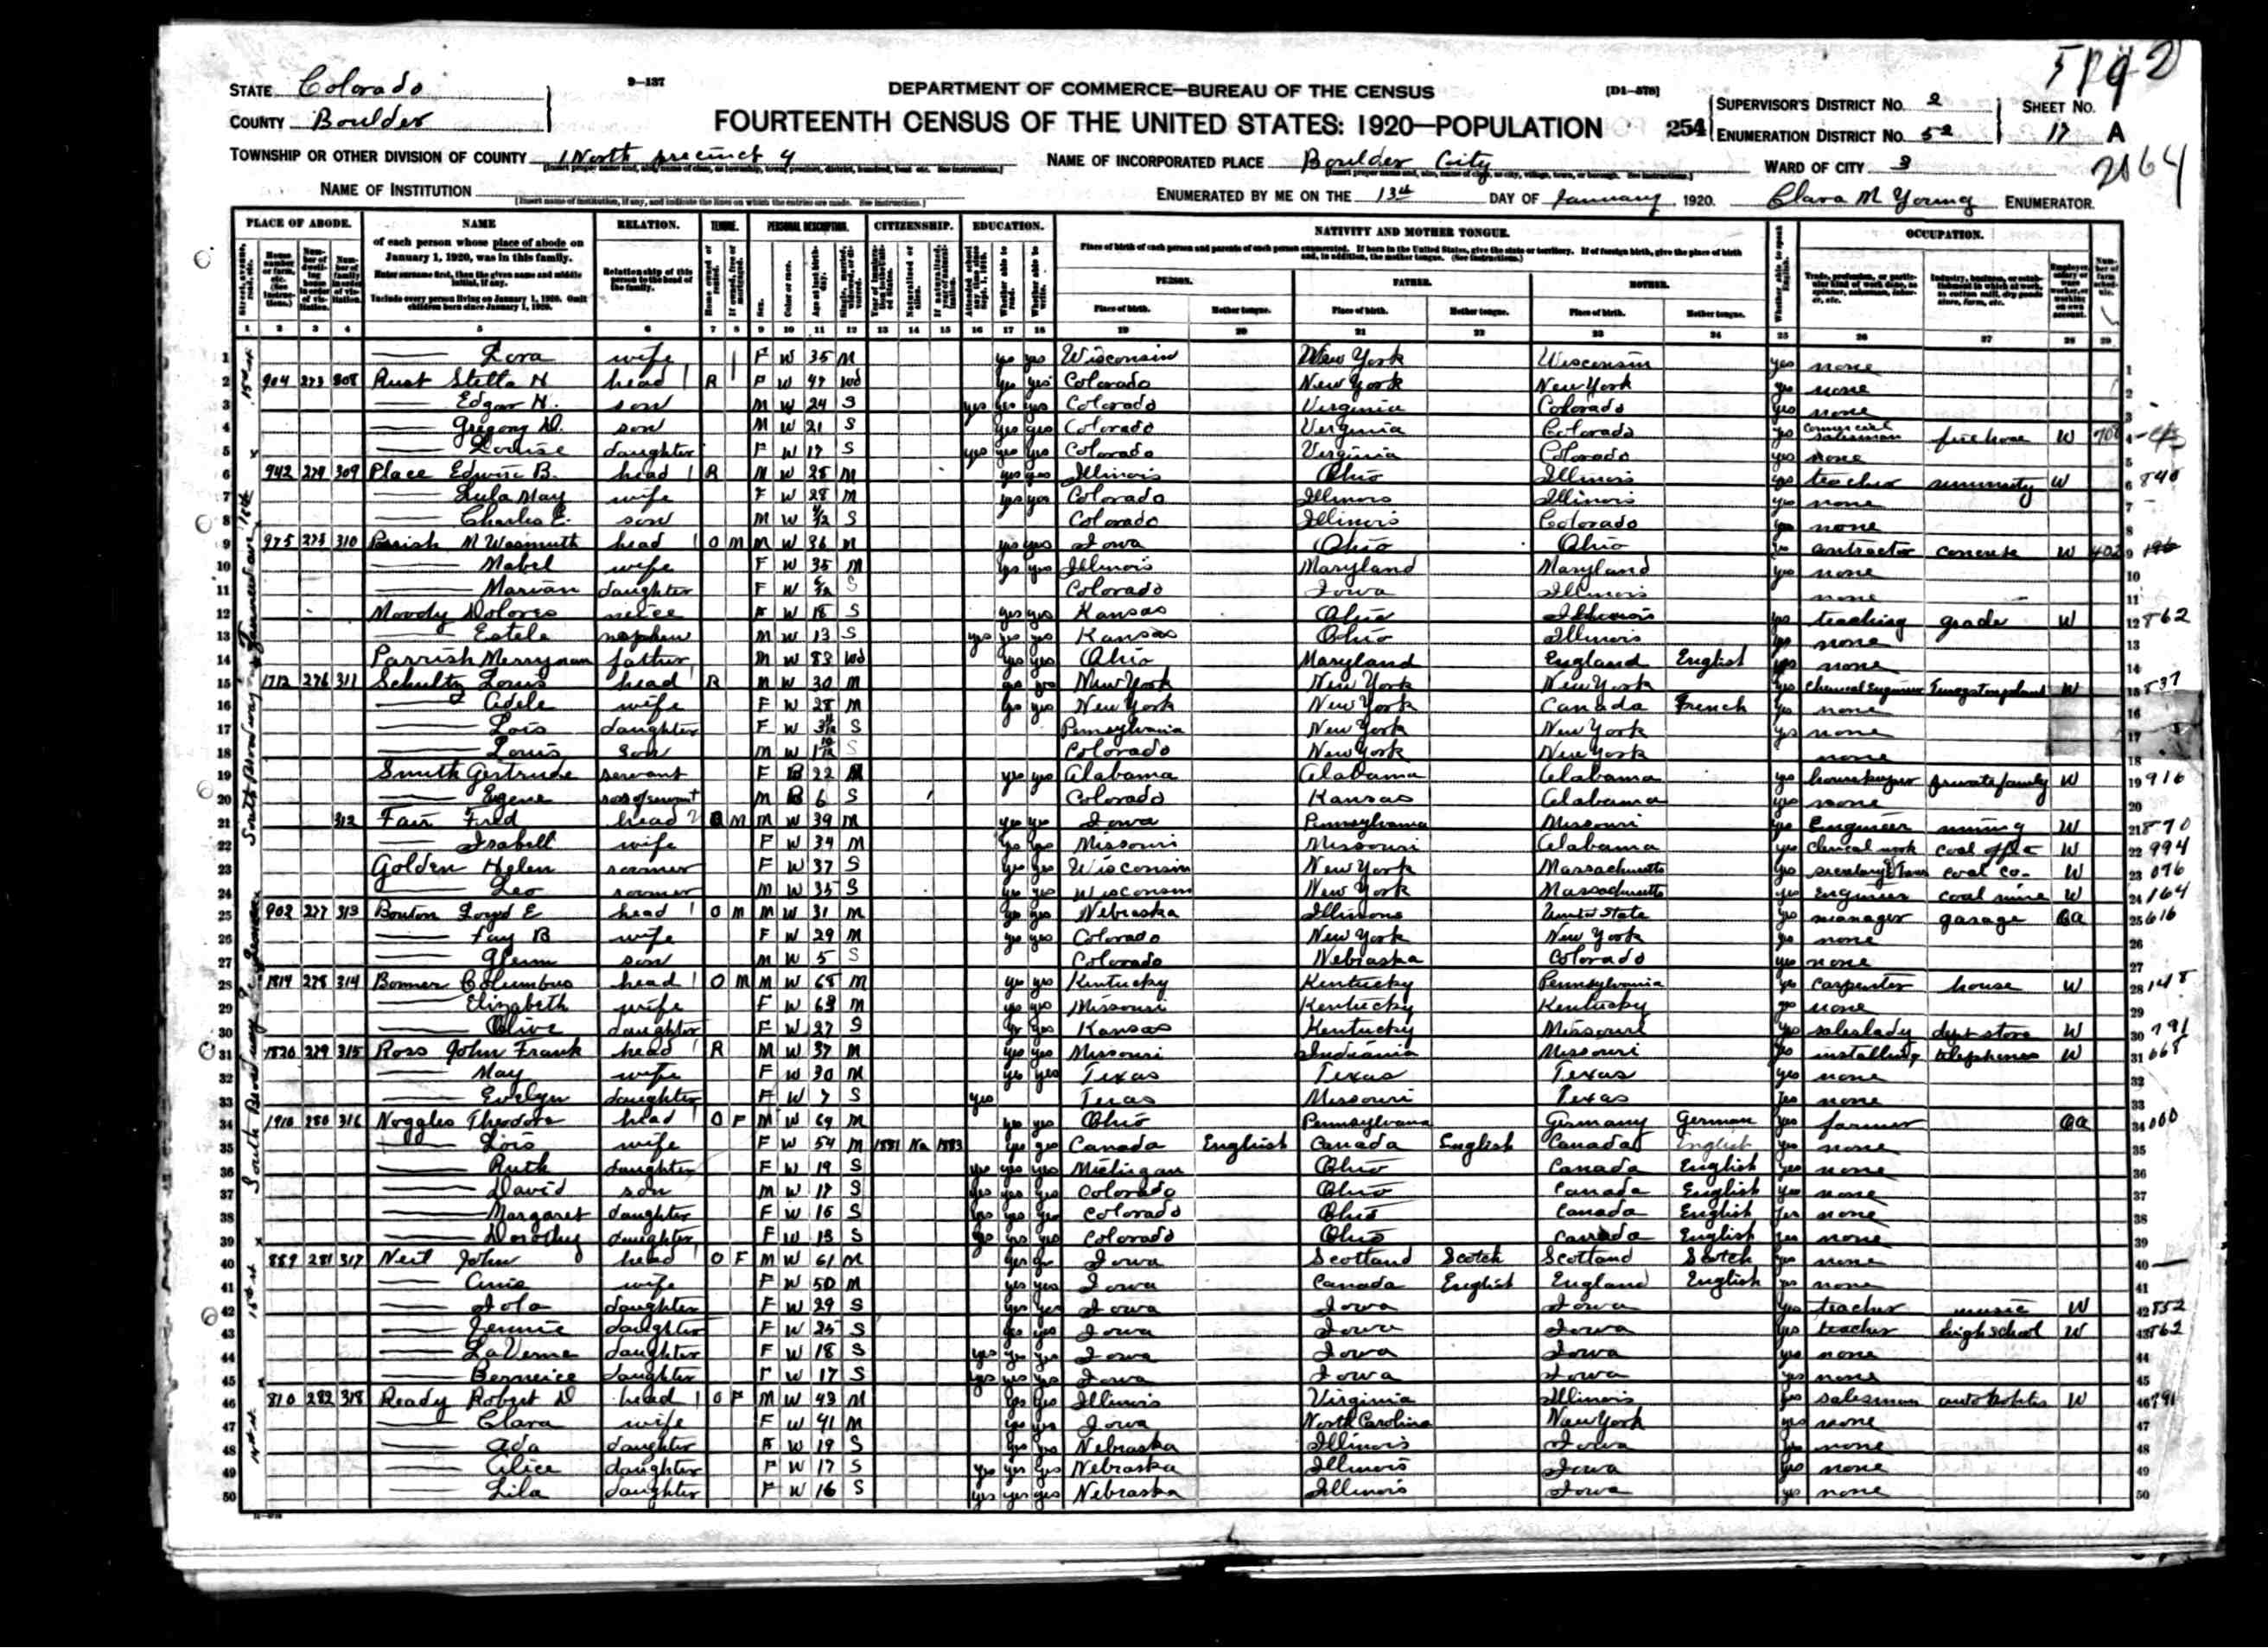 5192
STATE Colorado
9—137
DEPARTMENT OF COMMERCE—BUREAU OF THE CENSUS
[D1—578]
SUPERVISOR'S DISTRICT No. 2
SHEET No.
COUNTY Boulder
FOURTEENTH CENSUS OF THE UNITED STATES: 1920—POPULATION
254
ENUMERATION DISTRICT No. 52
17 A
TOWNSHIP OR OTHER DIVISION OF COUNTY North precinct 4
NAME OF INCORPORATED PLACE Boulder City
WARD OF CITY 3
2864
NAME OF INSTITUTION
ENUMERATED BY ME ON THE 13th DAY OF January, 1920. Clara M Young ENUMERATOR.
PLACE OF ABODE. NAME RELATION. TENURE. PERSONAL DESCRIPTION. CITIZENSHIP. EDUCATION. NATIVITY AND MOTHER TONGUE. OCCUPATION.
of each person whose place of abode on January 1, 1920, was in this family.
Enter surname first, then the given name and middle initial, if any.
Include every person living on January 1, 1920. Omit children born since January 1, 1920.
Relationship of this person to the head of the family.
Place of birth of each person and parents of each person enumerated. If born in the United States, give the state or territory. If of foreign birth, give the place of birth and, in addition, the mother tongue. (See instructions.)
PERSON. FATHER. MOTHER.
Place of birth. Mother tongue. Place of birth. Mother tongue. Place of birth. Mother tongue.
1 2 3 4 5 6 7 8 9 10 11 12 13 14 15 16 17 18 19 20 21 22 23 24 25 26 27 28 29
1 Lora wife F W 35 M yes yes Wisconsin New York Wisconsin yes none 1
2 904 273 308 Rust Stella H head R F W 47 Wd yes yes Colorado New York New York yes none 2
3 Edgar H. son M W 24 S yes yes yes Colorado Virginia Colorado yes none 3
4 Gregory D. son M W 21 S yes yes Colorado Virginia Colorado yes commercial salesman fire hose W 4
5 Louise daughter F W 17 S yes yes yes Colorado Virginia Colorado yes none 5
6 942 274 309 Place Edwin B. head R M W 28 M yes yes Illinois Ohio Illinois yes teacher W 6 840
7 Lula May wife F W 28 M yes yes Colorado Illinois Illinois yes none 7
8 Charles E. son M W S Colorado Illinois Colorado none 8
9 975 275 310 Parrish M Wasmuth head O M M W 36 M yes yes Iowa Ohio Ohio yes contractor concrete W 9
10 Mabel wife F W 35 M yes yes Illinois Maryland Maryland yes none 10
11 Marian daughter F W S Colorado Iowa Illinois none 11
12 Moody Dolores neice F W 18 S yes yes Kansas Ohio Illinois yes teaching grade W 12 862
13 Estele nephew M W 13 S yes yes yes Kansas Ohio Illinois yes none 13
14 Parrish Merryman father M W 83 Wd yes yes Ohio Maryland England English yes none 14
15 1712 276 311 Schultz Louis head R M W 30 M yes yes New York New York New York yes chemical engineer W 15 837
16 Adele wife F W 28 M yes yes New York New York Canada French yes none 16
17 Lois daughter F W S Pennsylvania New York New York yes none 17
18 Louis son M W S Colorado New York New York none 18
19 Smith Gertrude servant F B 22 M yes yes Alabama Alabama Alabama yes housekeeper private family W 19 916
20 Eugene son of servant M B 6 S Colorado Kansas Alabama yes none 20
21 312 Fair Fred head O M M W 39 M yes yes Iowa Pennsylvania Missouri yes Engineer mining W 21 870
22 Isabell wife F W 34 M yes yes Missouri Missouri Alabama yes clerical work coal office W 22 994
23 Golden Helen roomer F W 37 S yes yes Wisconsin New York Massachusetts yes coal co. W 23 096
24 Leo roomer M W 35 S yes yes Wisconsin New York Massachusetts yes Engineer coal mine W 24 164
25 902 277 313 Bouton Loyd E head O M M W 31 M yes yes Nebraska Illinois United State yes manager garage Oa 25 616
26 Fay B wife F W 29 M yes yes Colorado New York New York yes none 26
27 Glenn son M W 5 S Colorado Nebraska Colorado yes none 27
28 1814 278 314 Bonner Columbus head O M M W 68 M yes yes Kentucky Kentucky Pennsylvania yes carpenter house W 28 148
29 Elizabeth wife F W 63 M yes yes Missouri Kentucky Kentucky yes none 29
30 Olive daughter F W 27 S yes yes Kansas Kentucky Missouri yes saleslady dept store W 30 791
31 1820 279 315 Ross John Frank head R M W 37 M yes yes Missouri Indiania Missouri yes installing telephones W 31 668
32 May wife F W 30 M yes yes Texas Texas Texas yes none 32
33 Evelyn daughter F W 7 S yes Texas Missouri Texas yes none 33
34 1910 280 316 Noggles Theodore head O F M W 69 M yes yes Ohio Pennsylvania Germany German yes farmer Oa 34 000
35 Lois wife F W 54 M 1881 Na 1883 yes yes Canada English Canada English Canada English yes none 35
36 Ruth daughter F W 19 S yes yes yes Michigan Ohio Canada English yes none 36
37 David son M W 17 S yes yes yes Colorado Ohio Canada English yes none 37
38 Margaret daughter F W 15 S yes yes yes Colorado Ohio Canada English yes none 38
39 Dorothy daughter F W 13 S yes yes yes Colorado Ohio Canada English yes none 39
40 889 281 317 Neil John head O F M W 61 M yes yes Iowa Scotland Scotch Scotland Scotch yes none 40
41 Amie wife F W 50 M yes yes Iowa Canada English England English yes none 41
42 Iola daughter F W 29 S yes yes Iowa Iowa Iowa yes teacher music W 42 852
43 Jennie daughter F W 25 S yes yes Iowa Iowa Iowa yes teacher high school W 43 862
44 LaVerne daughter F W 18 S yes yes yes Iowa Iowa Iowa yes none 44
45 Berneice daughter F W 17 S yes yes yes Iowa Iowa Iowa yes none 45
46 810 282 318 Ready Robert D head O F M W 43 M yes yes Illinois Virginia Illinois yes salesman W 46 791
47 Clara wife F W 41 M yes yes Iowa North Carolina New York yes none 47
48 Ada daughter F W 19 S yes yes Nebraska Illinois Iowa yes none 48
49 Alice daughter F W 17 S yes yes yes Nebraska Illinois Iowa yes none 49
50 Lila daughter F W 16 S yes yes yes Nebraska Illinois Iowa yes none 50